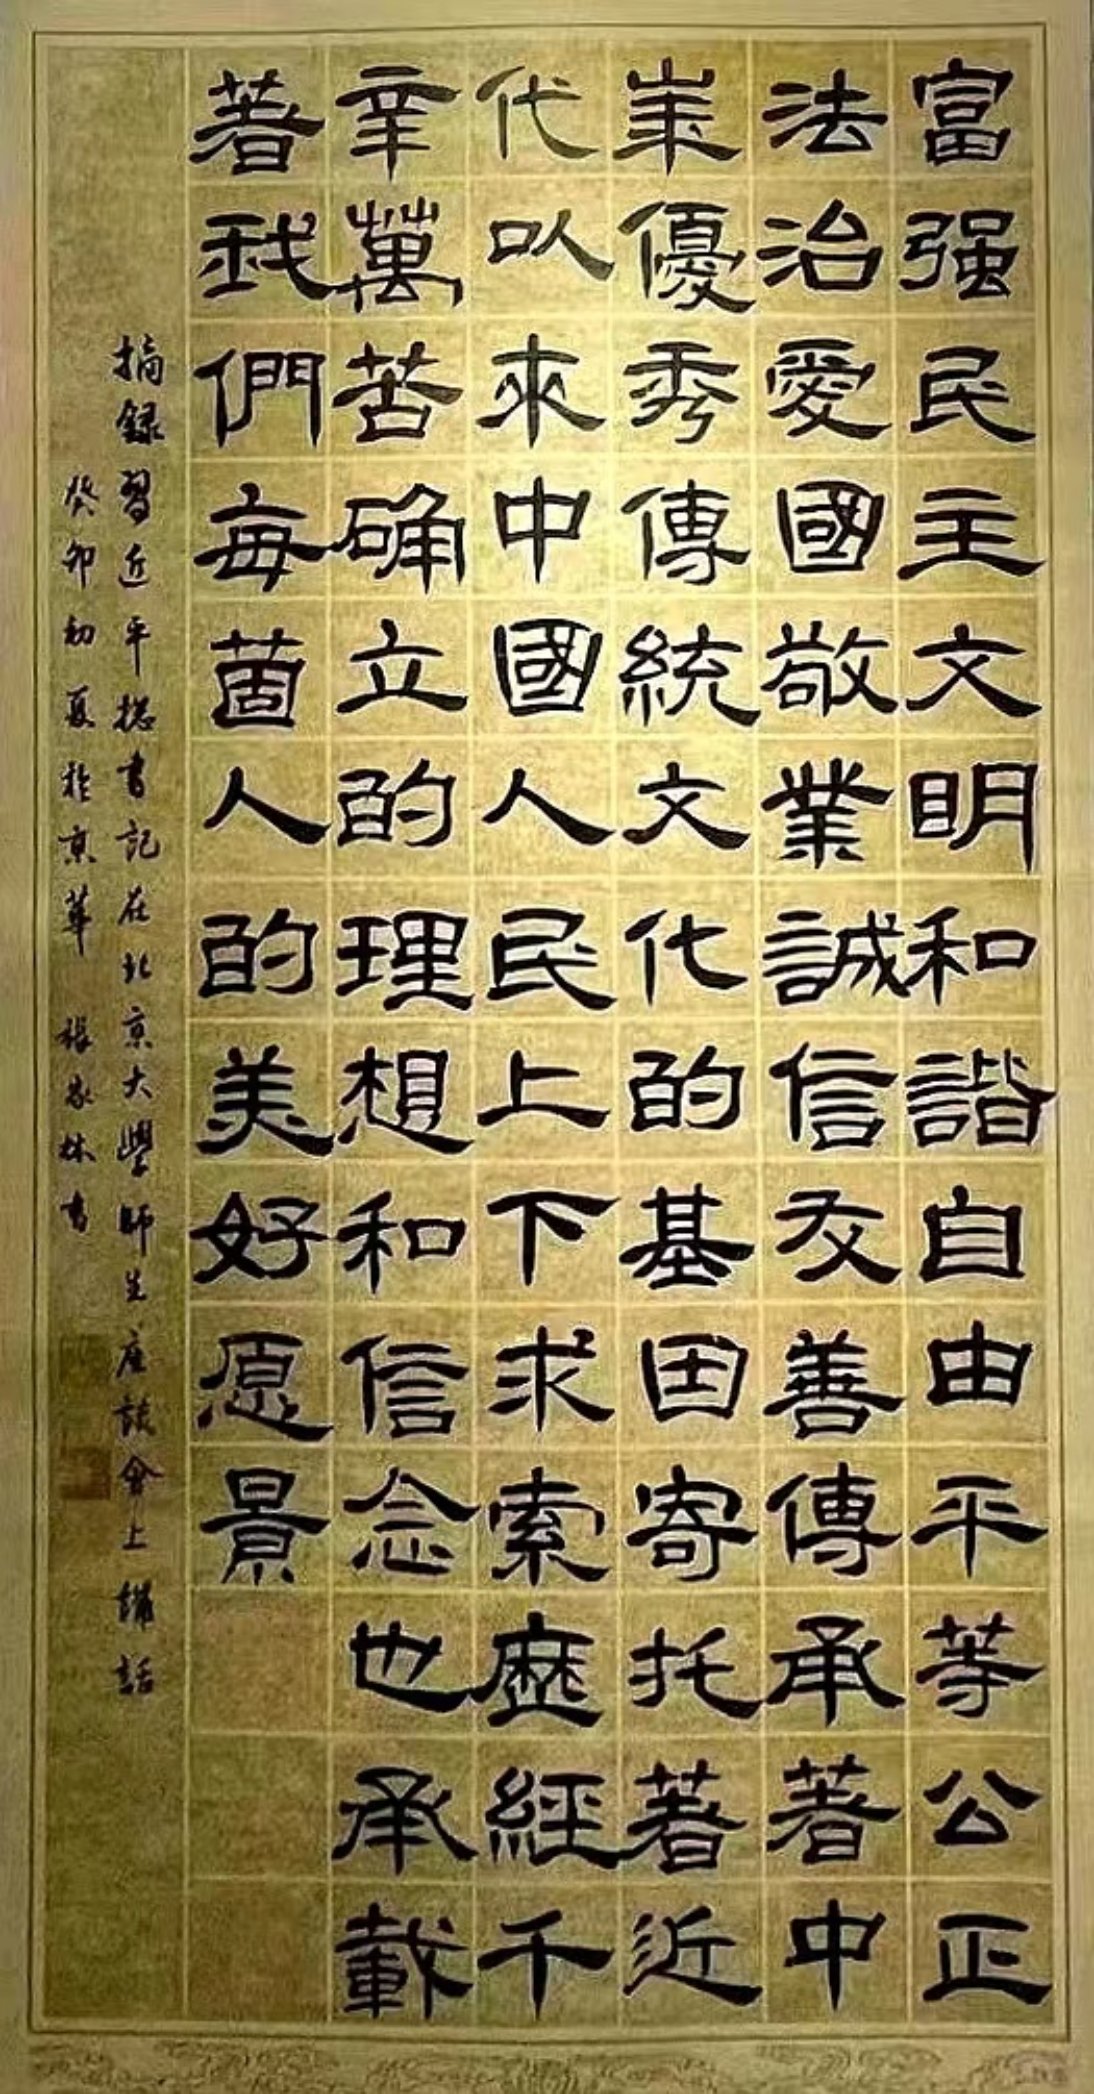 富强民主文明和諧自由平等公正
法治愛國敬業誠信友善傳承著中
華優秀傳統文化的基因寄托著近
代以來中國人民上下求索歷經千
辛萬苦确立的理想和信念也承載
著我們每箇人的美好愿景
摘録習近平總書記在北京大學師生座談會上講話
癸卯初夏於京華 張家林書